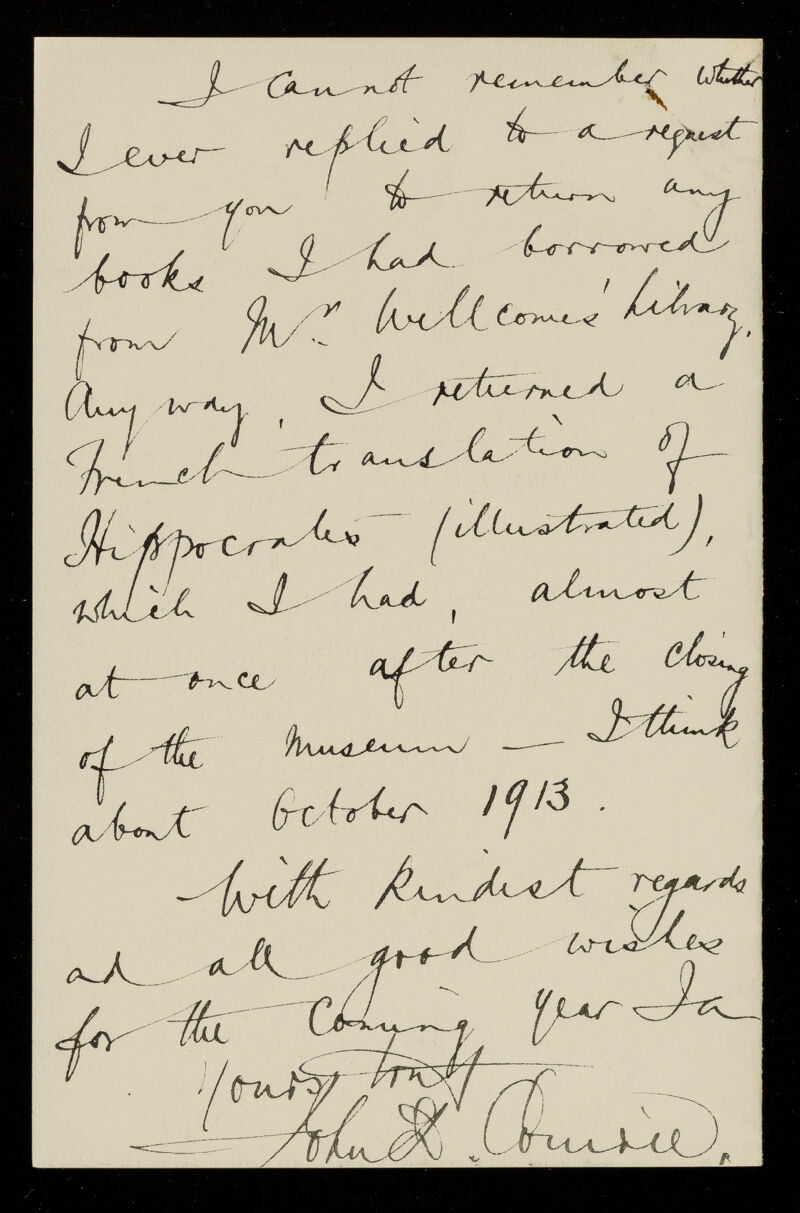 I cannot remember whether
I ever replied to a request
from you to return any
books I had borrowed
from Mr. Wellcomes' Library.
Anyway, I returned a
French translation of
Hippocrates (illustrated),
which I had, almost
at once after the closing
of the museum — I think
about October 1913.
With kindest regards
ad all good wishes
for the coming year I a
Yours truly
John D. Comrie.